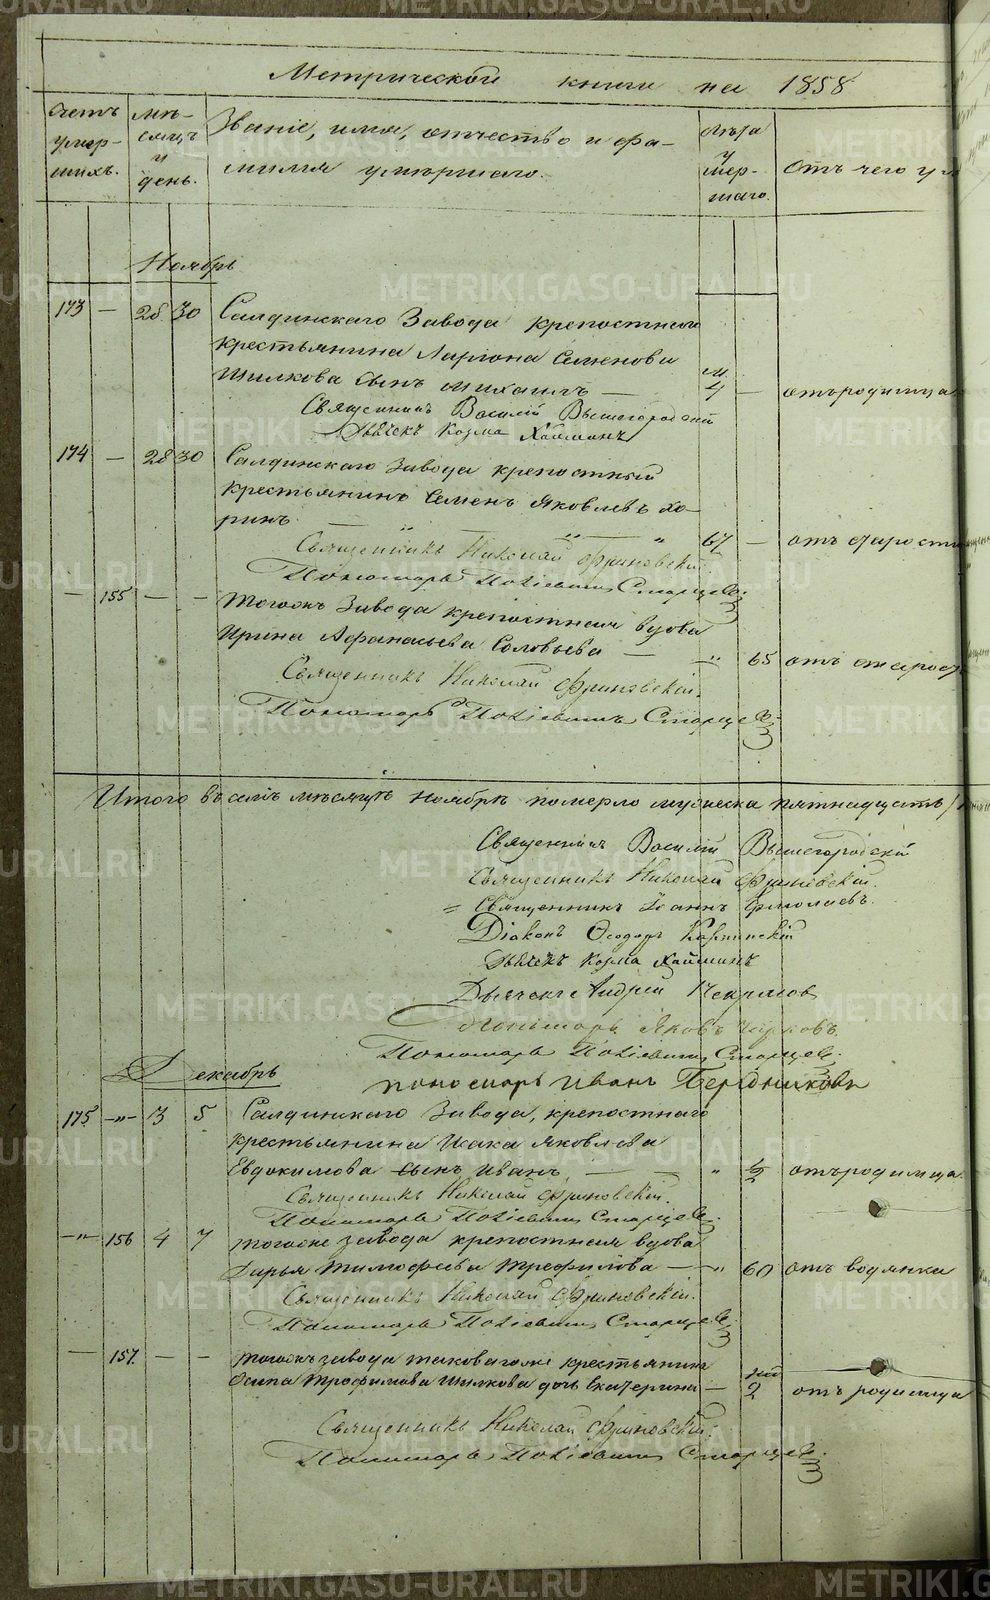 Метрической книги на 1858
Счетъ умер-шихъ.
Мѣ-сяцъ и день.
Званіе, имя, отчество и фа-
милія умершаго.
Лѣта умер-шаго.
Отъ чего у
Ноябрь
173 — 28 30 Салдинскаго Завода крепостнаго
крестьянина Ларіона Семенова
Шилкова сынъ Михаилъ — м 4 — отъ родимца
Священникъ Василій Вышегородскій
Дьячекъ Козма Хайминъ
174 — 28 30 Салдинскаго Завода крепостный
крестьянинъ Семенъ Яковлевъ Хо-
ринъ — 67 — отъ старости
Священникъ Николай Фриновскій.
Пономарь Старцевъ
— 155 — — Тогожъ Завода крепостная вдова
Ирина Афанасьева Соловьева — 65 отъ старос
Священникъ Николай Фриновскій.
Пономарь Старцевъ
Итого въ семъ месяцѣ ноябрѣ померло мужеска пятнадцать
Священникъ Василій Вышегородскій
Священникъ Николай Фриновскій.
Священникъ Іоаннъ Ермолаевъ.
Діаконъ Ѳеодоръ
Дьячекъ Козма Хайминъ
Дьячекъ Андрей Некрасов
Пономарь Яковъ
Пономарь Старцевъ.
пономарь Иванъ Бердниковъ
Декабрь
175 — 3 5 Салдинскаго Завода, крепостнаго
крестьянина Исака Яковлева
Евдокимова сынъ Иванъ — " ½ отъ родимца
Священникъ Николай Фриновскій.
Пономарь Старцевъ
— 156 4 7 тогоже завода крепостная вдова
Дарья Тимофеева Трефилова — " 60 отъ водянки
Священникъ Николай Фриновскій.
Пономарь Старцевъ
— 157. — — тогожъ завода таковагоже крестьянина
Осипа Трофимова Шилкова дочь Екатерина — 2 отъ родимца
Священникъ Николай Фриновскій.
Пономарь Старцевъ.
METRIKI.GASO-URAL.RU